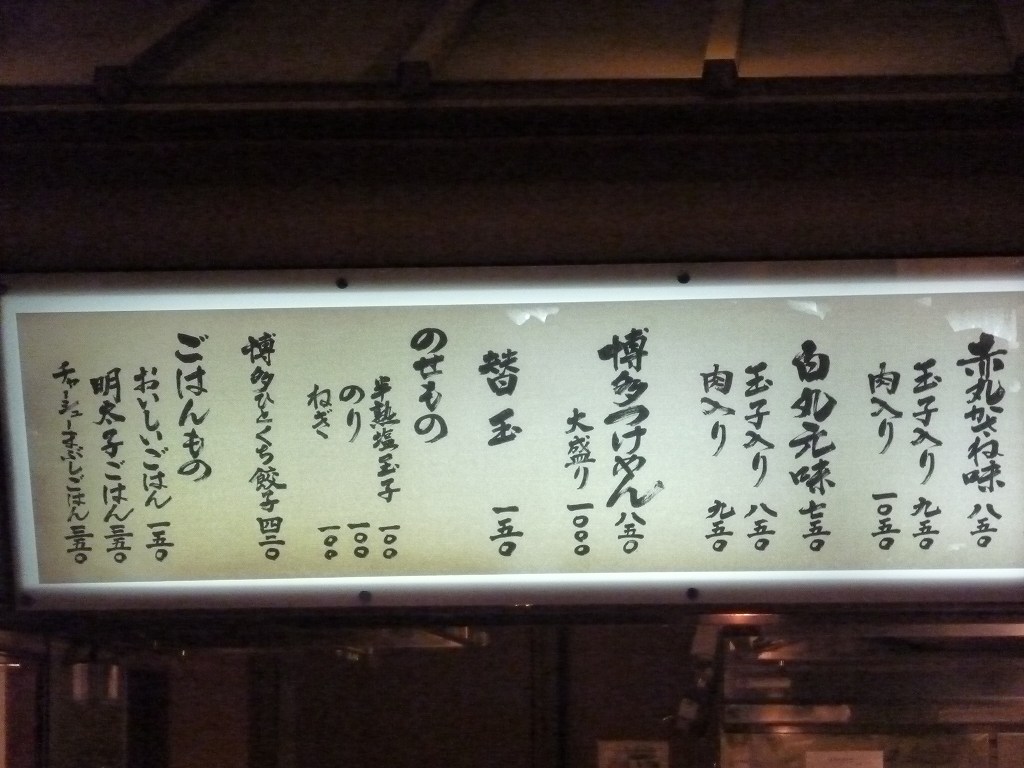 赤丸かさね味 八五〇
玉子入り 九五〇
肉入り 一〇五〇
白丸元味 七五〇
玉子入り 八五〇
肉入り 九五〇
博多つけめん 八五〇
大盛り 一〇〇〇
替玉 一五〇
のせもの
半熟塩玉子 一〇〇
のり 一〇〇
ねぎ 一〇〇
博多ひとくち餃子 四二〇
ごはんもの
おいしいごはん 一五〇
明太子ごはん 三五〇
チャーシューまぶしごはん 三五〇